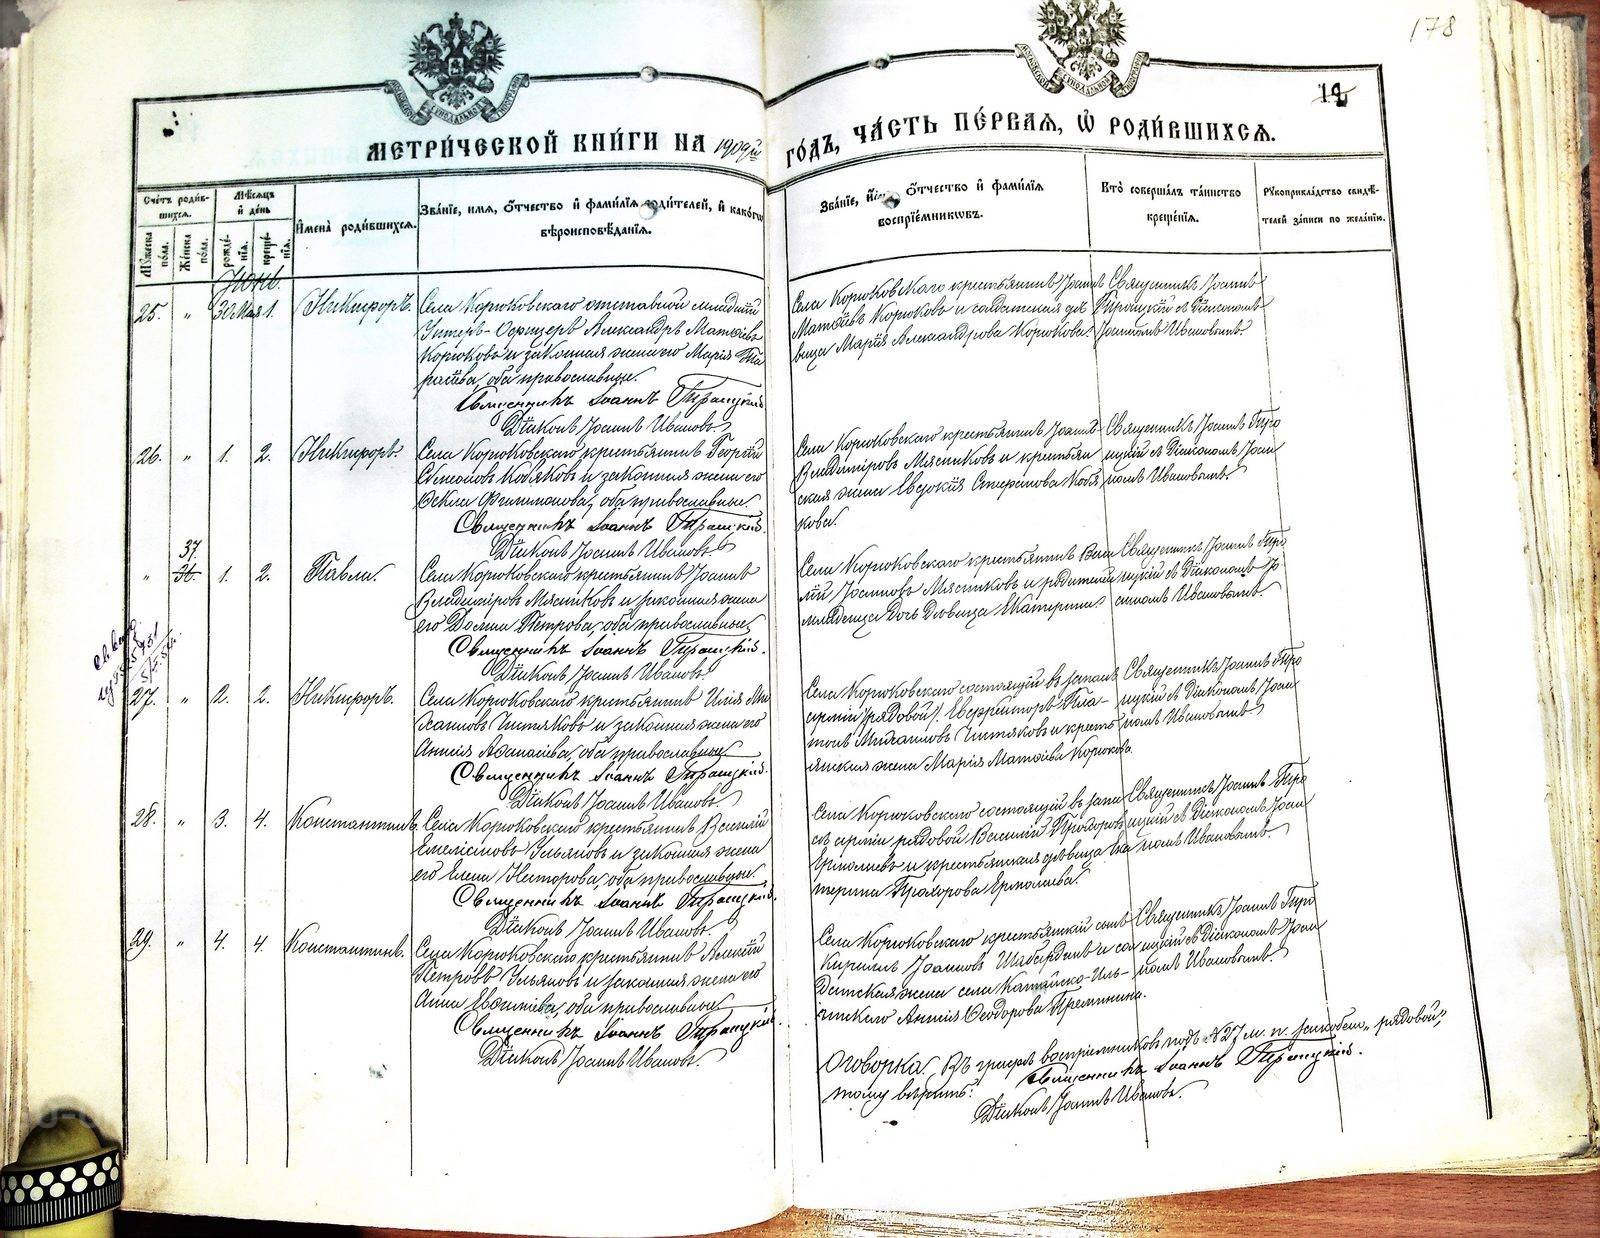 178
12
МЕТРИ́ЧЕСКОЙ КНИ́ГИ НА 1909й ГО́ДЪ, ЧА́СТЬ ПЕ́РВАЯ, Ѡ РОДИ́ВШИХСЯ.
Сче́тъ роди́вшихся.
Мѣ́сяцъ и день
Мꙋжеска по́ла.
Же́нска по́ла.
рожде́нїя.
креще́нїя.
Имена̀ роди́вшихся.
Зва́нїе, имя, о́тчество и фами́лїя роди́телей, и како́гѡ вѣроисповѣ́данїя.
Зва́нїе, и́мя, о́тчество и фами́лїя воспрїе́мникѡвъ.
Кто̀ соверша́лъ та́инство креще́нїя.
Рꙋкоприкла́дство свидѣ́телей за́писи по жела́нїи.
Іюнь.
25. " 30 Мая 1. Никифоръ.
Села Корюковскаго отставной младшій
Унтеръ-Офицеръ Александръ Матѳіевъ
Корюковъ и законная жена его Марія Та
расіева, оба православные.
Священникъ Іоаннъ Тироцкій
Діаконъ Іоаннъ Ивановъ.
Села Корюковскаго крестьянинъ Іоаннъ
Матѳіевъ Корюковъ и солдатская дѣ
вица Марія Александрова Корюкова.
Священникъ Іоаннъ
Тироцкій съ Діакономъ
Іоанномъ Ивановымъ.
26. " 1. 2. Никифоръ.
Села Корюковскаго крестьянинъ Георгій
Сѵмеоновъ Кобяковъ и законная жена его
Ѳекла Филимонова, оба православные.
Священникъ Іоаннъ Тироцкій.
Діаконъ Іоаннъ Ивановъ.
Села Корюковскаго крестьянинъ Іоаннъ
Владиміровъ Мясниковъ и крестьян
ская жена Евдокія Стефанова Кобя
кова.
Священникъ Іоаннъ Тиро
цкій съ Діакономъ Іоан
номъ Ивановымъ.
37
" 36. 1. 2. Павла.
Села Корюковскаго крестьянинъ Іоаннъ
Владиміровъ Мясниковъ и законная жена
его Домна Петрова, оба православные.
Священникъ Іоаннъ Тироцкій.
Діаконъ Іоаннъ Ивановъ.
Села Корюковскаго крестьянинъ Васи
лій Іоанновъ Мясниковъ и родителей
младенца дочь дѣвица Екатерина.
Священникъ Іоаннъ Тиро
цкій съ Діакономъ Іо
анномъ Ивановымъ.
27. " 2. 2. Никифоръ.
Села Корюковскаго крестьянинъ Илія Ми
хаиловъ Чистяковъ и законная жена его
Анисія Аѳанасіева, оба православные
Священникъ Іоаннъ Тироцкій.
Діаконъ Іоаннъ Ивановъ.
Села Корюковскаго состоящій въ запасѣ
арміи (рядовой). Ефрейторъ Пла-
тонъ Михаиловъ Чистяковъ и кресть
янская жена Марія Матѳіева Корюкова.
Священникъ Іоаннъ Тиро
цкій съ Діакономъ Іоан
номъ Ивановымъ.
28. " 3. 4. Константинъ.
Села Корюковскаго крестьянинъ Василій
Емеліановъ Ульяновъ и законная жена
его Елена Несторова, оба православные.
Священникъ Іоаннъ Тироцкій.
Діаконъ Іоаннъ Ивановъ.
Села Корюковскаго состоящій въ запа
сѣ арміи рядовой Василій Прохоровъ
Ермолаевъ и крестьянская дѣвица Ека
терина Прохорова Ермолаева.
Священникъ Іоаннъ Тиро
цкій съ Діакономъ Іоан
номъ Ивановымъ.
29. " 4. 4. Константинъ.
Села Корюковскаго крестьянинъ Алексій
Петровъ Ульяновъ и законная жена его
Анна Евѳиміева, оба православные
Священникъ Іоаннъ Тироцкій.
Діаконъ Іоаннъ Ивановъ.
Села Корюковскаго крестьянскій сынъ
Кириллъ Іоанновъ и сол
датская жена села Катайско-Иль-
инскаго Анисія Ѳеодорова
Священникъ Іоаннъ Тиро
цкій съ Діакономъ Іоан
номъ Ивановымъ.
Оговорка. Въ графѣ воспріемниковъ подъ №27 м. п. заскоблено "рядовой",
тому вѣрить:
Священникъ Іоаннъ Тироцкій.
Діаконъ Іоаннъ Ивановъ.